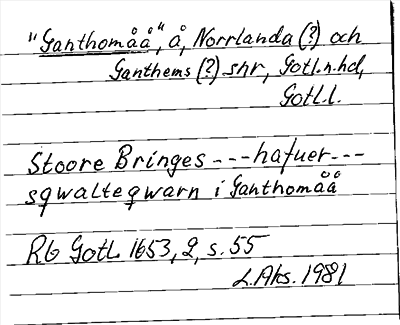 "Ganthomåå", å, Norrlanda (?) och
Ganthems (?) snr, Gotl. n. hd,
Gotl. l.
Stoore Bringes --- hafuer ---
sqwalteqwarn i Ganthomåå
Rb Gotl. 1653, 2, s. 55
L. Ahs. 1981